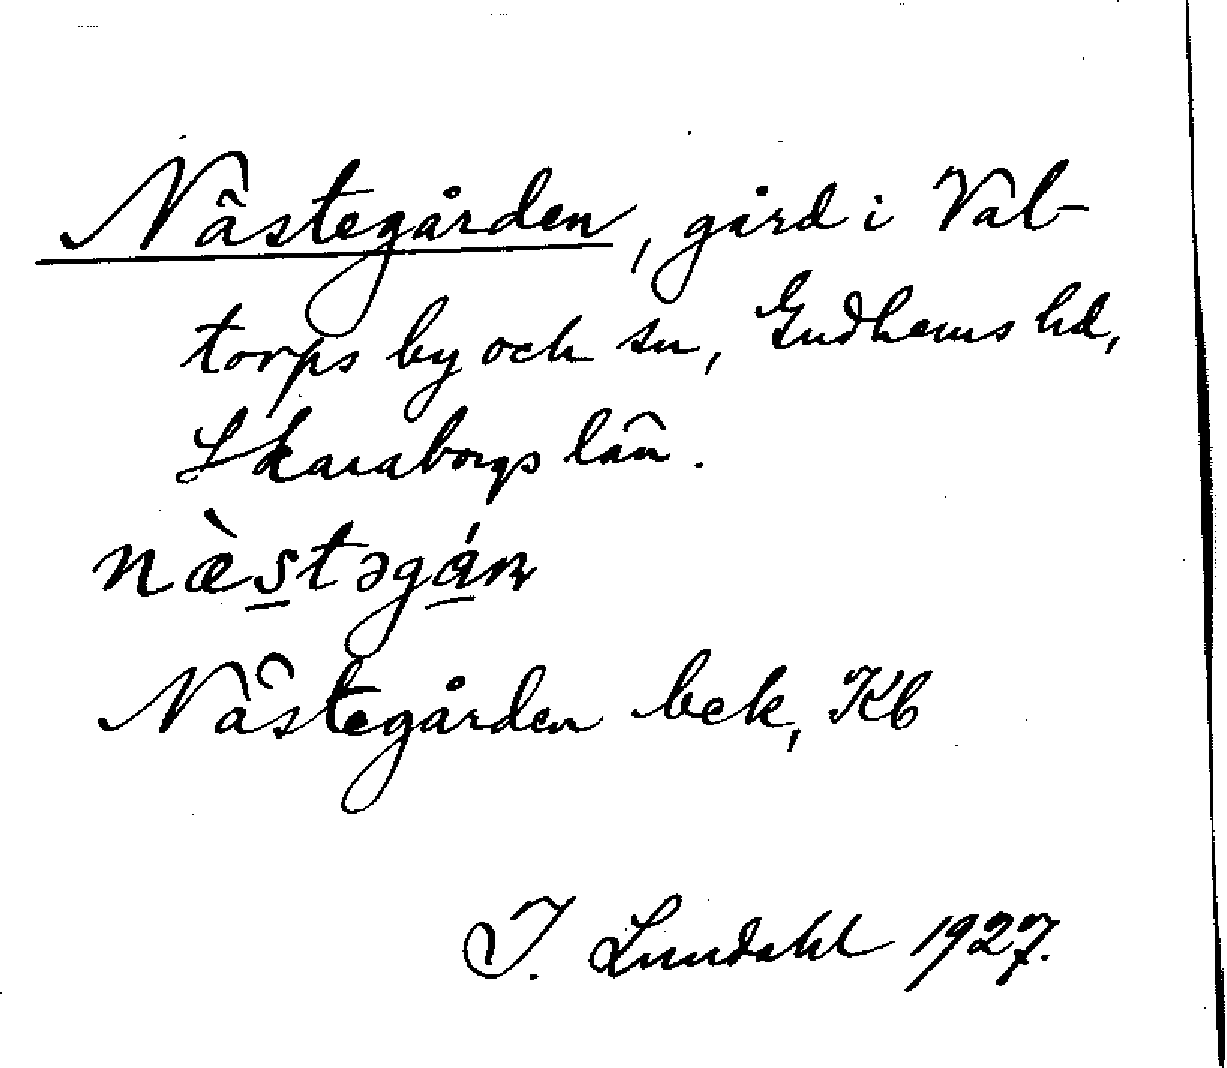 Nästegården, gård i Val-
torps by och sn, Gudhems hd,
Skaraborgs län.
næ̀s̲təgá̲ɳ
Nästegården bek, Kb
I. Lundahl 1927.